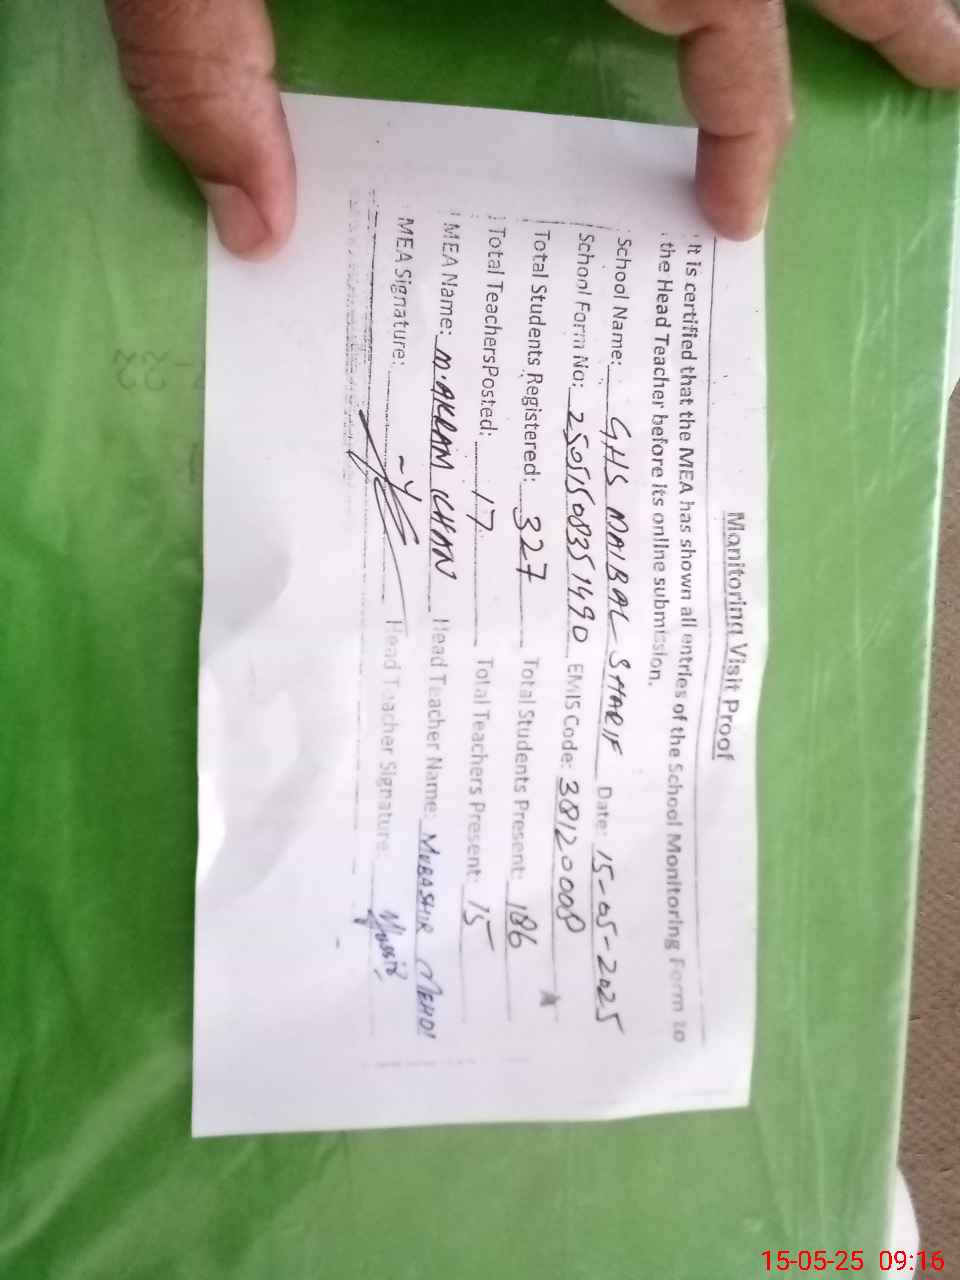 Monitoring Visit Proof
It is certified that the MEA has shown all entries of the School Monitoring Form to
the Head Teacher before its online submission.
School Name: GHS MAIBAL SHARIF Date: 15-05-2025
School Form No: 25051508351490 EMIS Code: 38120008
Total Students Registered: 327 Total Students Present: 186
Total TeachersPosted: 17 Total Teachers Present: 15
MEA Name: M.AKRAM KHAN Head Teacher Name: MUBASHIR MEHDI
MEA Signature: Head Teacher Signature:
15-05-25 09:16